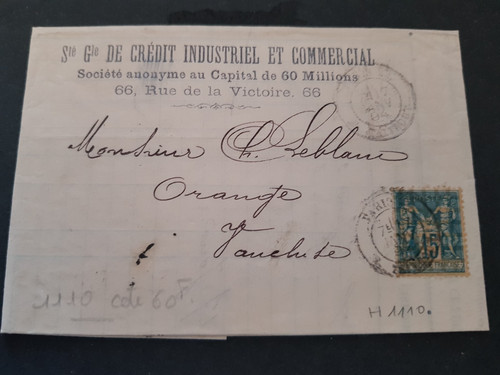 Sté Gle DE CRÉDIT INDUSTRIEL ET COMMERCIAL
Société anonyme au Capital de 60 Millions
66, Rue de la Victoire, 66
Monsieur Leblanc
Orange
Vaucluse
PARIS
15
1110 60F
H 1110.